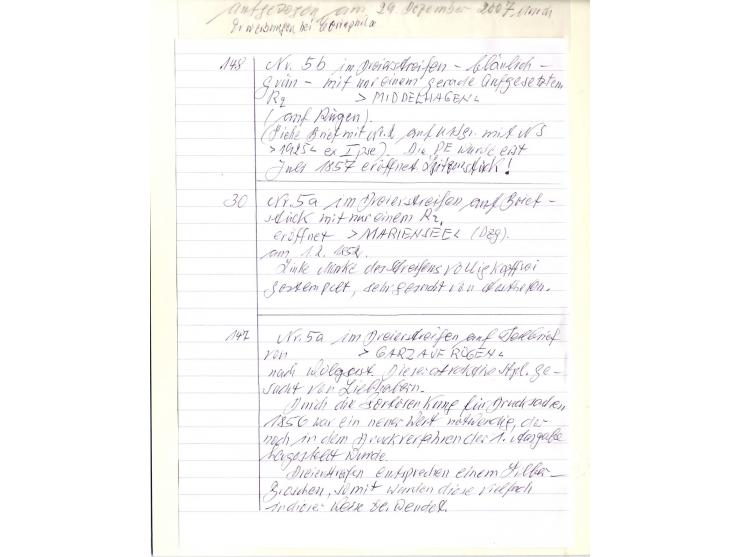 aufgezogen am 29 Dezember 2007, durch
Erwerbungen bei
148 Nr. 5b im Dreierstreifen - bläulich-
grün - mit nur einem gerade aufgesetztem
R2 >MIDDELHAGEN<
(auf Rügen).
(Siehe Brief mit Nr. 2 auf mit NS
>1925< ex ). Die PE wurde erst
Juli 1857 eröffnet. Spitzenstück!
30 Nr. 5a im Dreierstreifen auf Brief-
stück mit nur einem R2,
eröffnet >MARIENSEE< (Dzg).
am 1.2. 1852.
Linke Marke des Streifens völlig kopffrei
gestempelt, sehr gesucht von Aestheten.
147 Nr. 5a im Dreierstreifen auf
von >GARZ AUF RÜGEN<
nach Wolgast. Diese attraktive Stpl. ge-
sucht von Liebhabern.
Durch die Portosenkung für Drucksachen
1856 war ein neuer Wert notwendig, der
noch in dem Druckverfahren der 1. Ausgabe
hergestellt wurde.
Dreierstreifen entsprechen einem Silber-
Groschen, somit wurden diese vielfach
in dieser Weise verwendet.